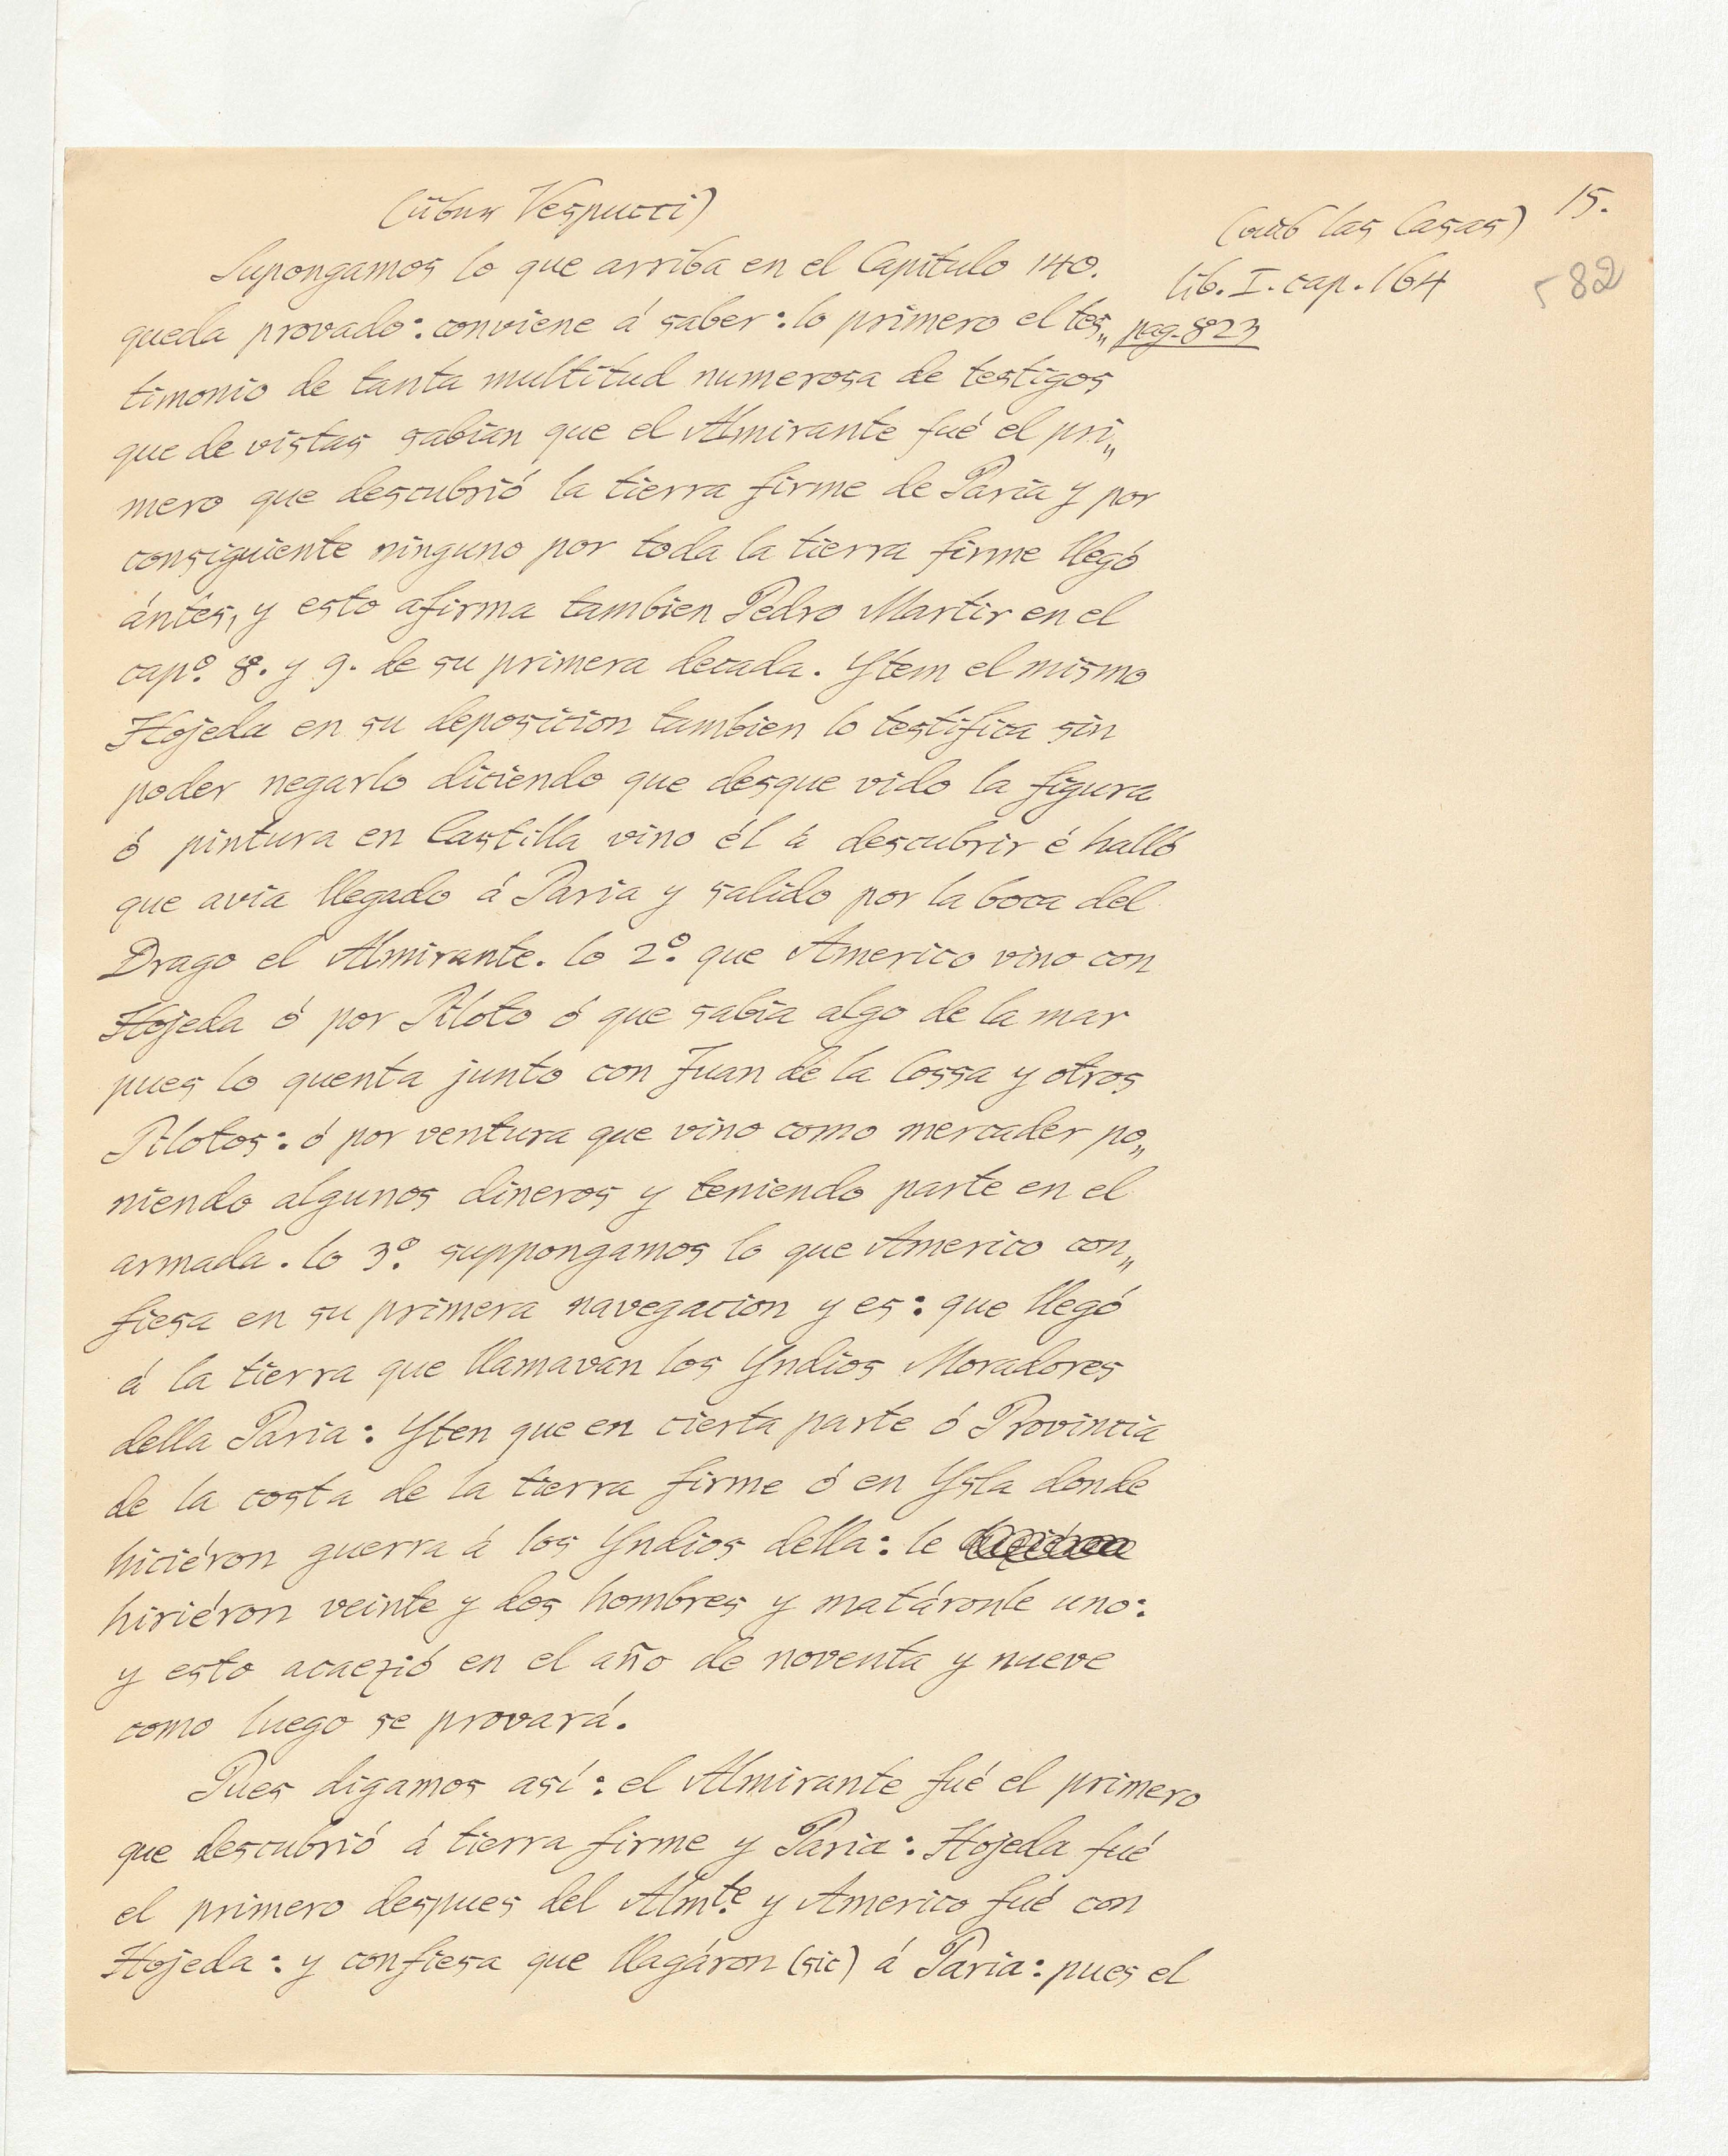 15.
(über Vespucci)
(aus las Casas)
lib. I. cap. 164
582
pag. 823
Supongamos lo que arriba en el Capitulo 140.
queda provado: conviene á saber: lo primero el tes„
timonio de tanta multitud numerosa de testigos
que de vistas sabian que el Almirante fué el pri„
mero que descubrió la tierra firme de Paria y por
consiguiente ninguno por toda la tierra firme llegó
ántes, y esto afirma tambien Pedro Martir en el
capº. 8. y 9. de su primera decada. Ytem el mismo
Hojeda en su deposicion tambien lo testifica sin
poder negarlo diciendo que desque vido la figura
ó pintura en Castilla vino él á descubrir é halló
que avia llegado á Paria y salido por la boca del
Drago el Almirante. lo 2º. que Americo vino con
Hojeda ó por Piloto ó que sabia algo de la mar
pues lo quenta junto con Juan de la Cossa y otros
Pilotos: ó por ventura que vino como mercader po„
niendo algunos dineros y teniendo parte en el
armada. lo 3º. suppongamos lo que Americo con„
fiesa en su primera navegacion y es: que llegó
á la tierra que llamavan los Yndios Moradores
della Paria: Yten que en cierta parte ó Provincia
de la costa de la tierra firme ó en Ysla donde
hiciéron guerra á los Yndios della: le
hiriéron veinte y dos hombres y matáronle uno:
y esto acaezió en el año de noventa y nueve
como luego se provará.
Pues digamos así: el Almirante fué el primero
que descubrió á tierra firme y Paria: Hojeda fué
el primero despues del Almte. y Americo fué con
Hojeda: y confiesa que llagáron (sic) á Paria: pues el